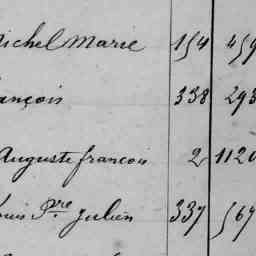 Michel Marie 154 459
ançois 338 293
Auguste françois 2 1120
ouis Pre Julien 337 567